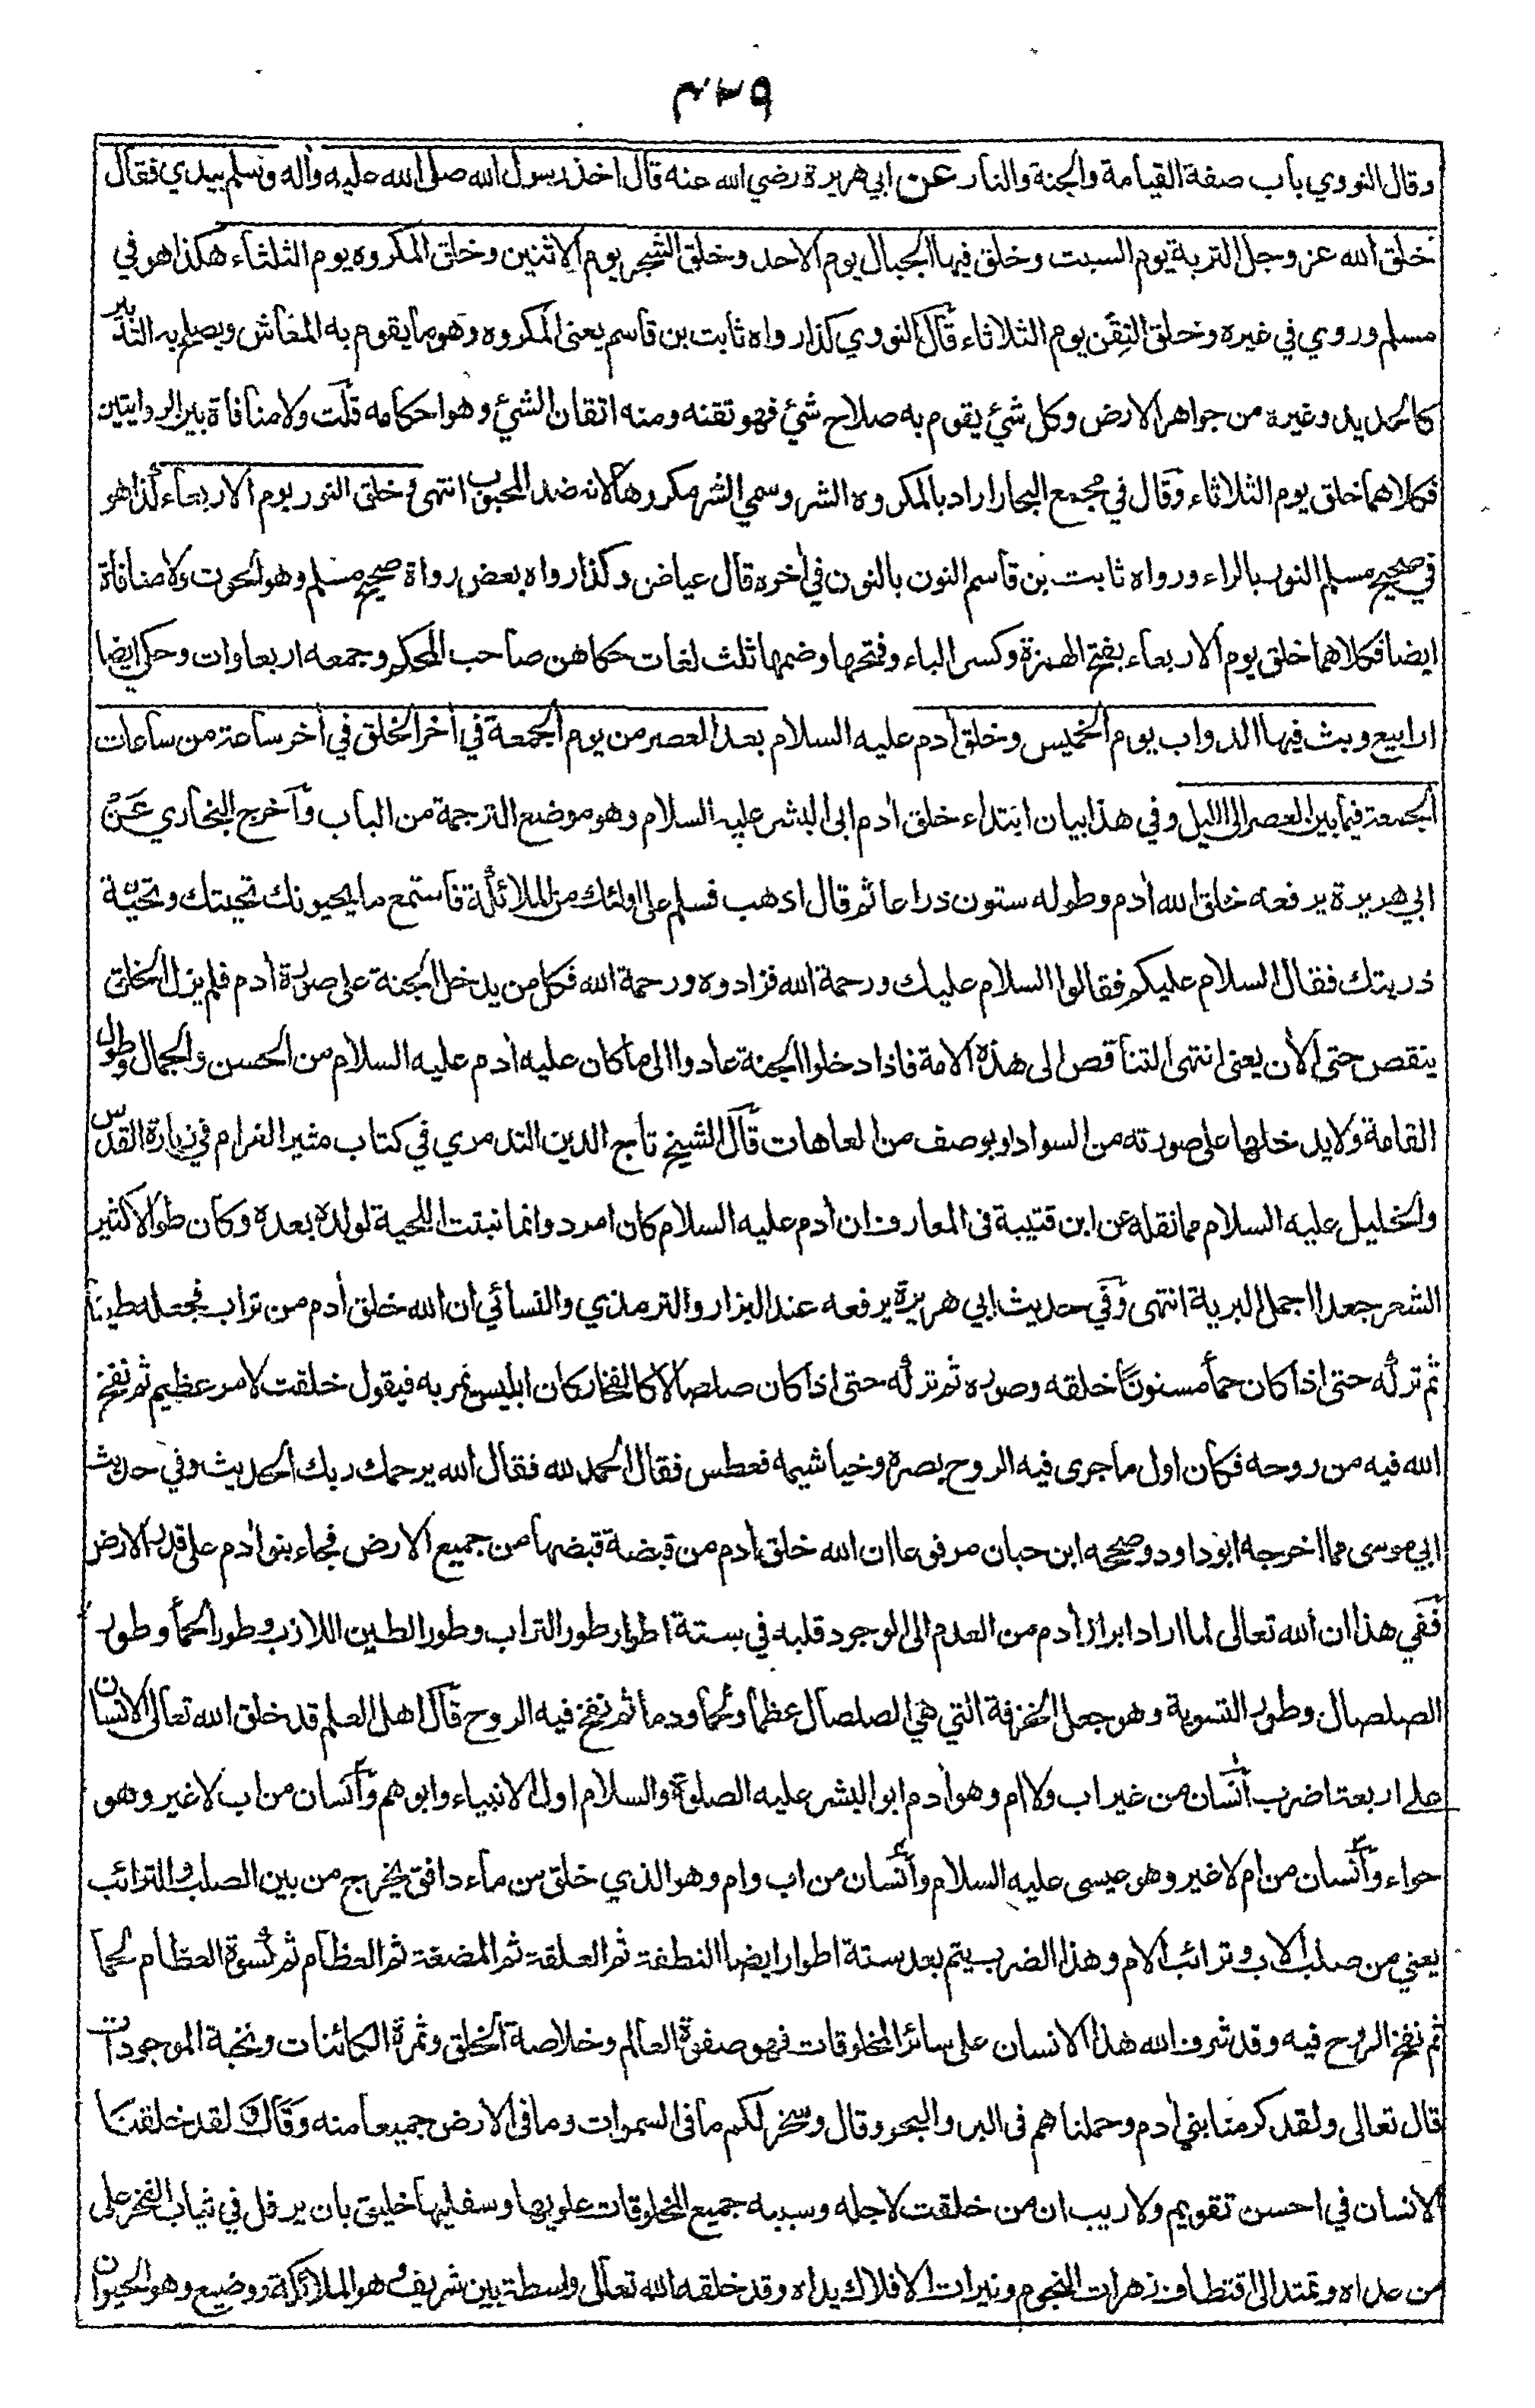 ٤٣٩
وقال النووي باب صفة القيامة والجنة والنار عن ابي هريرة رضي الله عنه قال اخذ رسول الله صلى الله عليه وأله وسلم بيدي فقال
خلق الله عز وجل التربة يوم السبت وخلق فيها الجبال يوم الاحد وخلق الشجر يوم الاثنين وخلق المكروه يوم الثلثاء هكذا هو في
مسلم وروي في غيره وخلق التِقَن يوم الثلاثاء قال النووي كذا رواه ثابت بن قاسم يعنى المكروه وهو ما يقوم به المعاش ويصلح به التدبير
كالحديد وغيره من جواهر الارض وكل شئ يقوم به صلاح شئ فهو تقنه ومنه اتقان الشئ وهو احكامه قلت ولا منافاة بين الروايتين
فكلاهما خلق يوم الثلاثاء وقال في مجمع البحار اراد بالمكروه الشر وسمي الشر مكروها لانه ضد المحبوب انتهى وخلق النور يوم الاربعاء كذا هو
في صحيح مسلم النور بالراء ورواه ثابت بن قاسم النون بالنون في أخره قال عياض وكذا رواه بعض رواة صحيح مسلم وهو الحوت ولا منافاة
ايضا فكلاهما خلق يوم الاربعاء بفتح الهمزة وكسر الباء وفتحها وضمها ثلث لغات حكاهن صاحب المحكم وجمعه اربعاوات وحكى ايضا
ارابيع وبث فيها الدواب يوم الخميس وخلق أدم عليه السلام بعد العصر من يوم الجمعة في أخر الخلق في أخر ساعة من ساعات
الجمعة فيما بين العصر الى الليل وفي هذا بيان ابتداء خلق أدم ابى البشر عليه السلام وهو موضع الترجمة من الباب وأخرج البخاري عَنْ
ابي هريرة يرفعه خلق الله أدم وطوله ستون ذراعا ثم قال اذهب فسلم على اولئك من الملائكة فاستمع ما يحيونك تحيتك وتحية
ذريتك فقال السلام عليكم فقالوا السلام عليك ورحمة الله فزادوه ورحمة الله فكل من يدخل الجنة على صورة أدم فلم يزل الخلق
ينقص حتى الأن يعنى انتهى التناقص الى هذه الامة فاذا دخلوا الجنة عادوا الى ما كان عليه أدم عليه السلام من الحسن والجمال وطول
القامة ولا يدخلها على صورته من السواد او بوصف من العاهات قال الشيخ تاج الدين التدمري في كتاب مثير الغرام في زيارة القدس
والخليل عليه السلام مما نقله عن ابن قتيبة فى المعارف ان أدم عليه السلام كان امرد وانما نبتت اللحية لولده بعده وكان طوالا كثير
الشعر جعدا اجمل البرية انتهى وفي حديث ابي هريرة يرفعه عند البزار والترمذي والنسائي ان الله خلق أدم من تراب فجعله طينا
ثم تركه حتى اذا كان حمأ مسنونا خلقه وصوره ثم تركه حتى اذا كان صلصالا كالفخار كان ابليس يمر به فيقول خلقت لامر عظيم ثم نفخ
الله فيه من روحه فكان اول ما جرى فيه الروح بصره وخياشيمه فعطس فقال الحمد لله فقال الله يرحمك ربك الحديث وفي حديث
ابي موسى مما اخرجه ابو داود وصححه ابن حبان مرفوعا ان الله خلق أدم من قبضة قبضها من جميع الارض فجاء بنو أدم على قدر الارض
ففي هذا ان الله تعالى لما اراد ابراز أدم من العدم الى الوجود قلبه في ستة اطوار طور التراب وطور الطين اللازب وطور الحمأ وطور
الصلصال وطور التسوية وهو جعل الخزفة التي هي الصلصال عظما ولحما ودما ثم نفخ فيه الروح قال اهل العلم قد خلق الله تعالى الانسان
على اربعة اضرب انسان من غير اب ولا ام وهو أدم ابو البشر عليه الصلوة والسلام اول الانبياء وابوهم وانسان من اب لا غير وهو
حواء وانسان من ام لا غير وهو عيسى عليه السلام وانسان من اب وام وهو الذي خلق من ماء دافق يخرج من بين الصلب والترائب
يعني من صلب الاب وترائب الام وهذا الضرب يتم بعد ستة اطوار ايضا النطفة ثم العلقة ثم المضغة ثم العظام ثم كسوة العظام لحما
ثم نفخ الروح فيه وقد شرف الله هذا الانسان على سائر المخلوقات فهو صفوة العالم وخلاصة الخلق وثمرة الكائنات ونخبة الموجودات
قال تعالى ولقد كرمنا بني أدم وحملناهم فى البر والبحر وقال وسخر لكم ما فى السموات وما فى الارض جميعا منه وقال لقد خلقنا
الانسان في احسن تقويم ولا ريب ان من خلقت لاجله وسببه جميع المخلوقات علويها وسفليها خليق بان يرفل في ثياب الفخر على
من عداه وتمتد الى اقتطاف زهرات النجوم ونيرات الافلاك يداه وقد خلقه الله تعالى واسطة بين شريف وهو الملائكة ووضيع وهو الحيوان